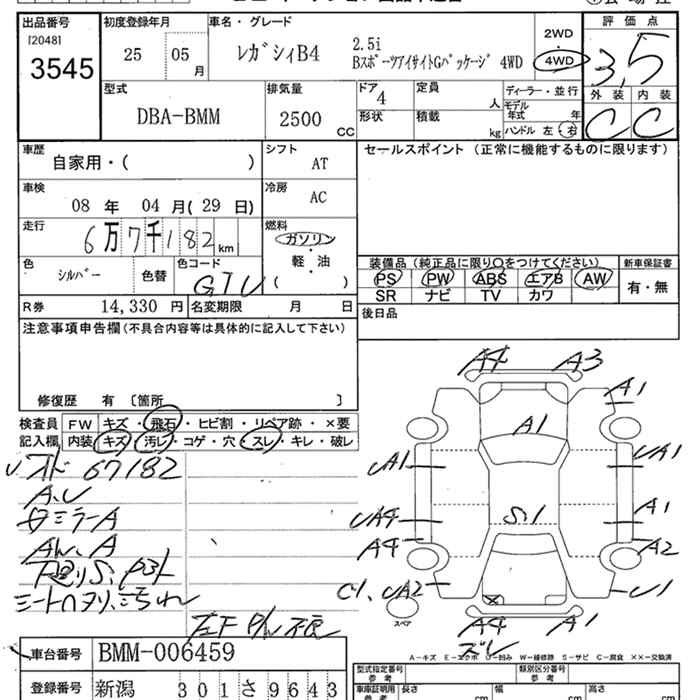 出品番号 初度登録年月 車名・グレード 評価点
[2048]
3545
25 05 月
レガシィB4
2.5i
BスポーツアイサイトGパッケージ 4WD
2WD
4WD
3.5
型式 排気量 ドア 定員 ディーラー・並行
DBA-BMM 2500 CC
4 人
モデル年式 年
形状 積載 kg
ハンドル 左・右
外装 内装
C C
車歴 シフト セールスポイント (正常に機能するものに限ります)
自家用・( ) AT
車検 冷房
08 年 04 月(29 日) AC
走行 燃料
6万7千182 km
ガソリン
軽・油
( )
色 色コード
シルバー 色替 GTU
装備品 (純正品に限り〇をつけてください) 新車保証書
PS PW ABS エアB AW
SR ナビ TV カワ
有・無
R券 14,330 円 名変期限 月 日
後日品
注意事項申告欄(不具合内容等は具体的に記入して下さい)
修復歴 有 〔箇所 〕
検査員 FW キズ・飛石・ヒビ割・リペア跡・×要
記入欄 内装 キズ・汚レ・コゲ・穴・スレ・キレ・破レ
67182
A.U
ミラーA
AW.A
A4 A3
A1
A1
UA1 UA1
UA4 S.1 A1
A4 A2
C1.UA2 U1
スペア
A4 A1
ズレ
A－キズ E－エクボ U－凹み W－補修跡 S－サビ C－腐食 ××－交換済
車台番号 BMM-006459
登録番号 新潟 301さ9643
型式指定番号 参考 類別区分番号 参考
車庫証明用 参考 長さ cm 幅 cm 高さ cm